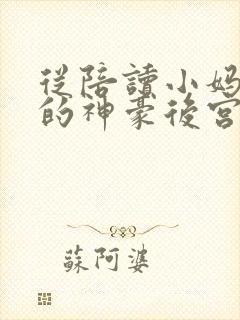 從陪讀小妈
的神豪後宮
蘇阿婆